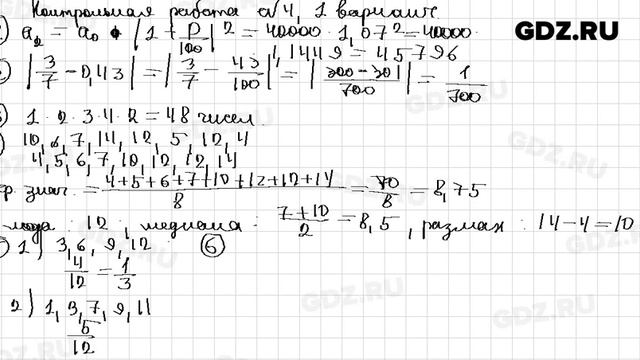 Контрольная работа №4, 1 вариант
GDZ.RU
a₂ = a₀ • |1 + p/100|² = 40000 · 1,07² = 40000 ·
· 1,1449 = 45796
|3/7 − 0,43| = |3/7 − 43/100| = |300 − 301/700| = 1/700
1 · 2 · 3 · 4 · 2 = 48 чисел.
10, 6, 7, 14, 12, 5, 12, 4
4, 5, 6, 7, 10, 12, 12, 14
р. знач. = 4+5+6+7+10+12+12+14/8 = 70/8 = 8,75
мода : 12 ; медиана : 7+10/2 = 8,5 , размах : 14 − 4 = 10
1) 3, 6, 9, 12 6
4/12 = 1/3
2) 1, 3, 7, 9, 11
5/12